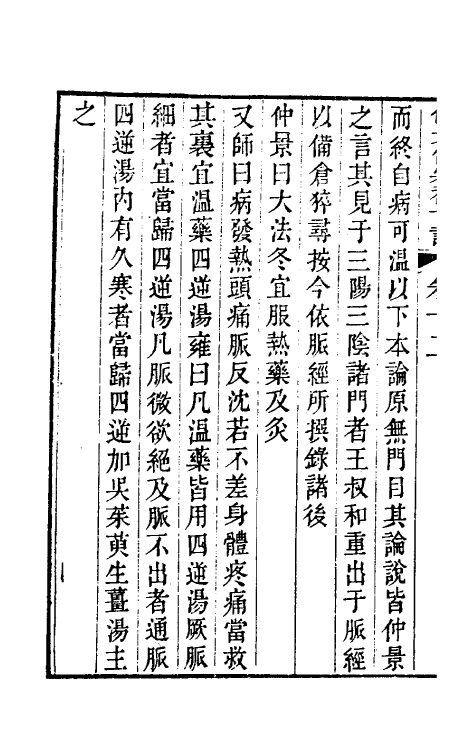 而終自病可温以下本論原無門目其論說皆仲景
之言其見于三陽三陰諸門者王叔和重出于脈經
以備倉猝尋按今依脈經所撰錄諸後
仲景曰大法冬宜服熱藥及灸
又師曰病發熱頭痛脈反沈若不差身體疼痛當救
其裏宜温藥四逆湯雍曰凡温藥皆用四逆湯厥脈
細者宜當歸四逆湯凡脈微欲絕及脈不出者通脈
四逆湯内有久寒者當歸四逆加吳茱萸生薑湯主
之